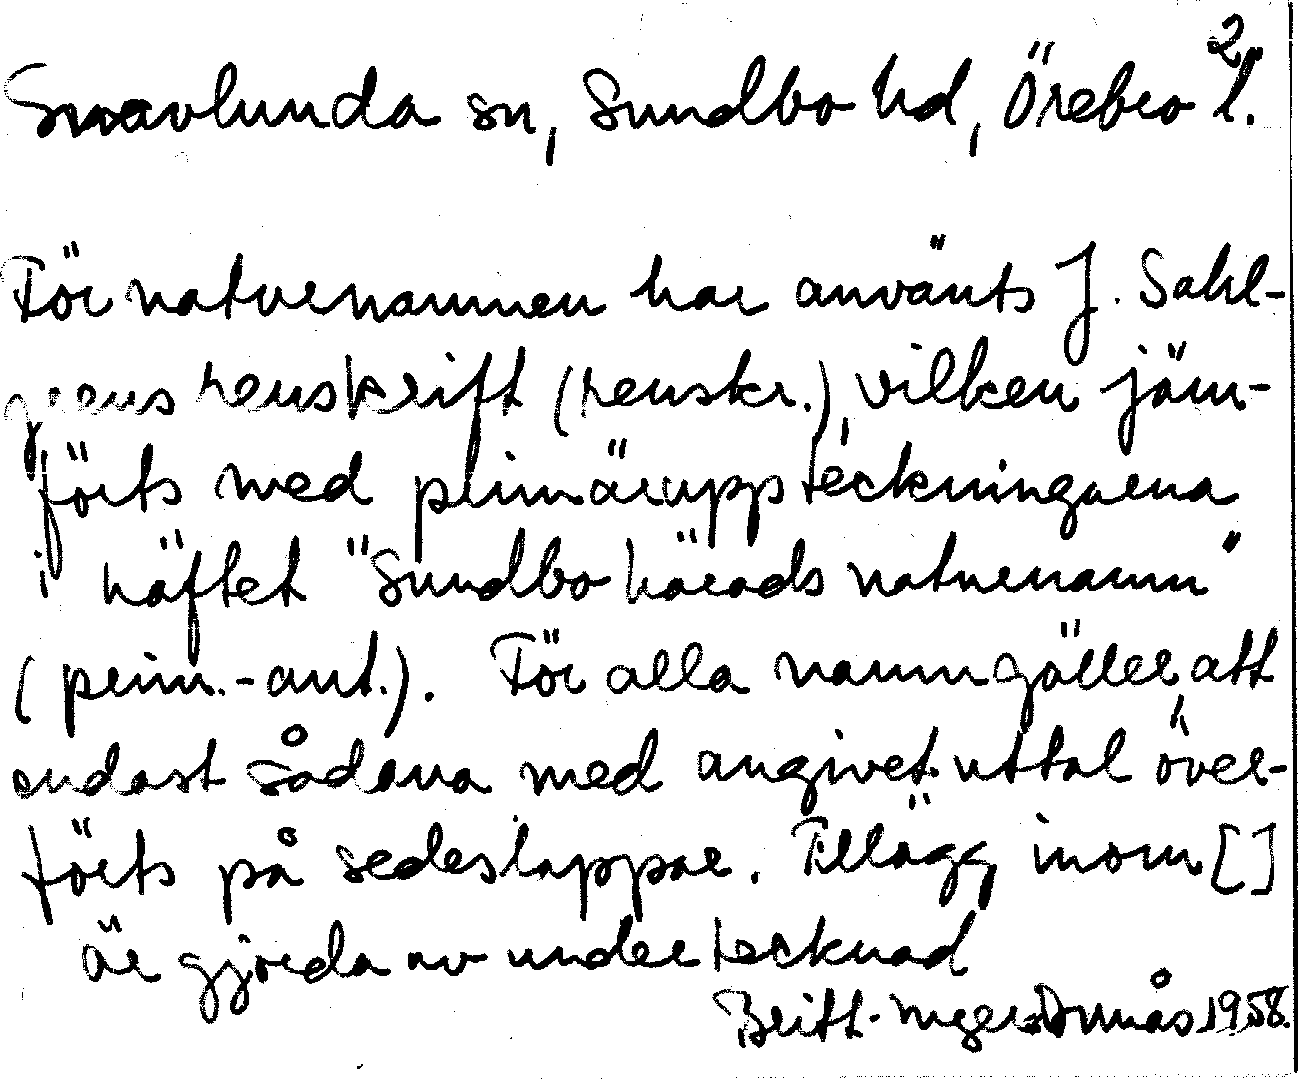 2
Snavlunda sn, Sundbo hd, Örebro l.
För naturnamnen har använts J. Sahl-
grens renskrift (renskr.), vilken jäm-
förts med primäruppteckningarna
i häftet "Sundbo härads naturnamn"
(prim.-ant.). För alla namn gäller, att
endast sådana med angivet uttal över-
förts på sedeslappar. Tillägg inom []
är gjorda av undertecknad
Britt-Inger 1958.